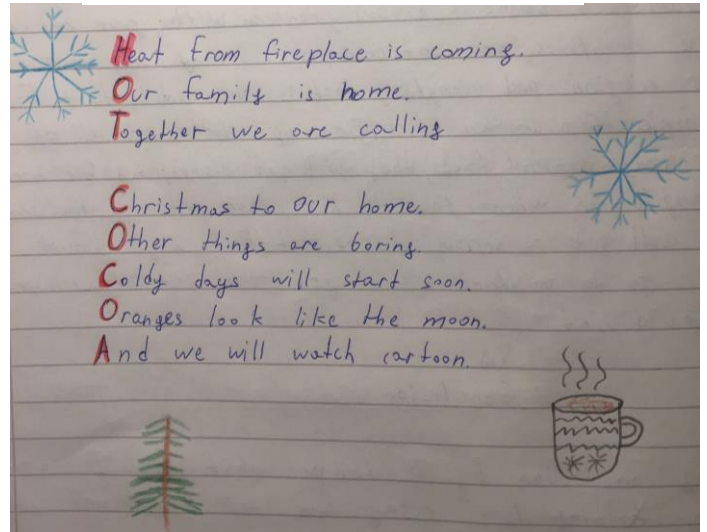 Heat from fireplace is coming.
Our family is home.
Together we are calling
Christmas to our home.
Other things are boring.
Coldy days will start soon.
Oranges look like the moon.
And we will watch cartoon.